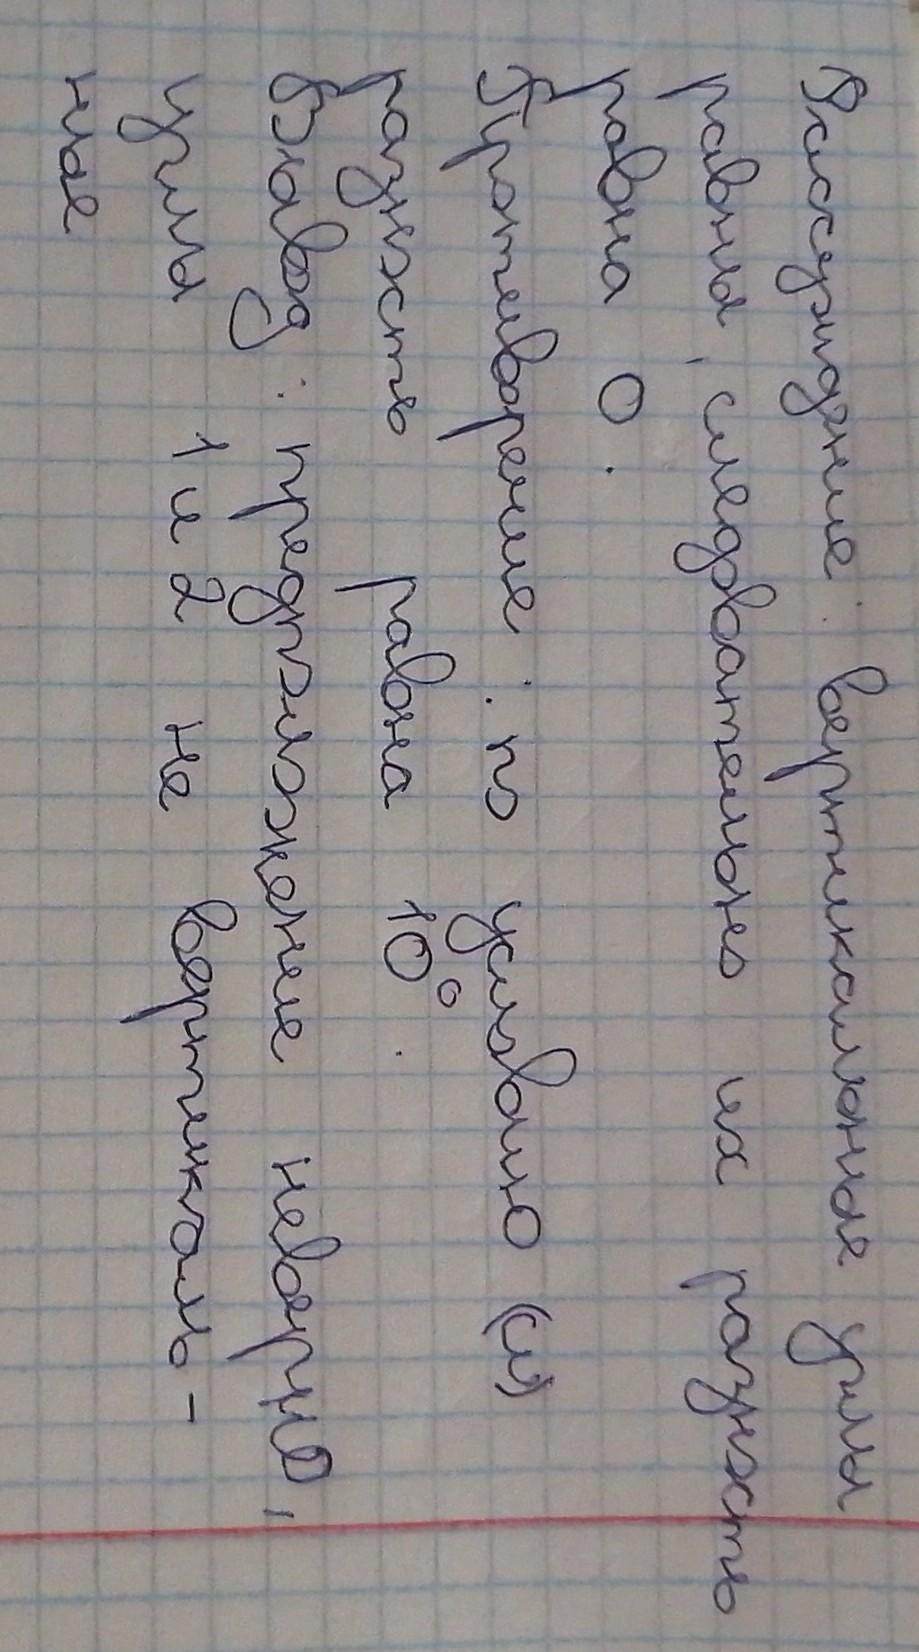 Рассуждение: вертикальные углы
равны, следовательно их разность
равна 0.
Противоречие: по условию (ш)
разность равна 10°.
Вывод: предположение неверно,
углы 1 и 2 не вертикаль-
ные